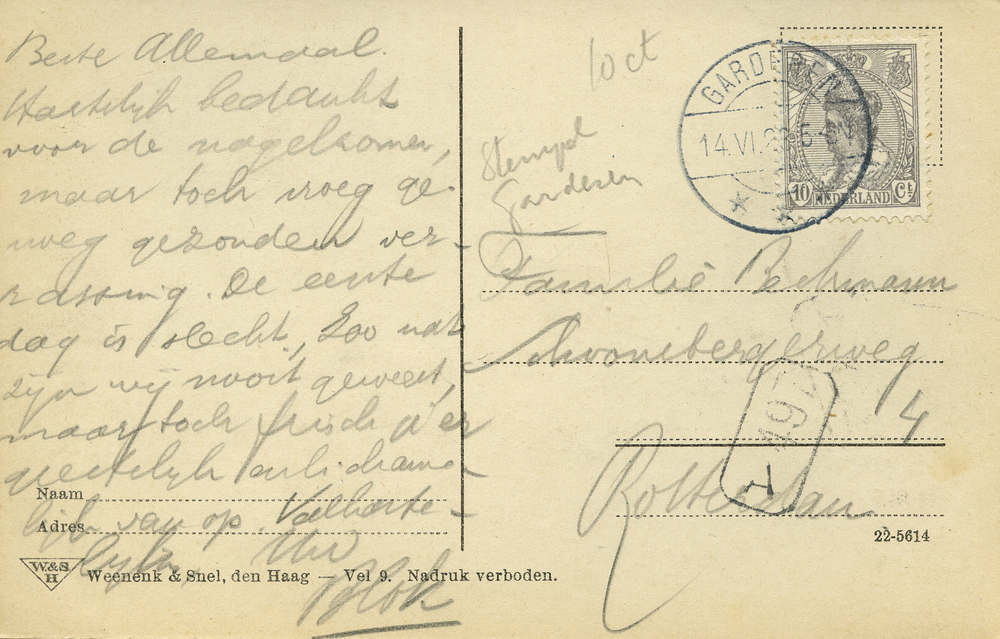 Beste Allemaal.
Hartelijk bedankt
voor de nagekomen,
maar toch vroeg ge-
noeg gezonden ver-
rassing. De eerste
dag is slecht, Zoo nat
zijn wij nooit geweest,
maar toch frisch
geestelijk en lichame-
lijk op.
Uw
Blok
10 ct
Stempel
Garderen
GARDEREN
14.VI.
10 NEDERLAND Ct
Familie Bechmann
4
Rotterdam
T
Naam
Adres
22-5614
W.&S.
H
Weenenk & Snel, den Haag — Vel 9. Nadruk verboden.